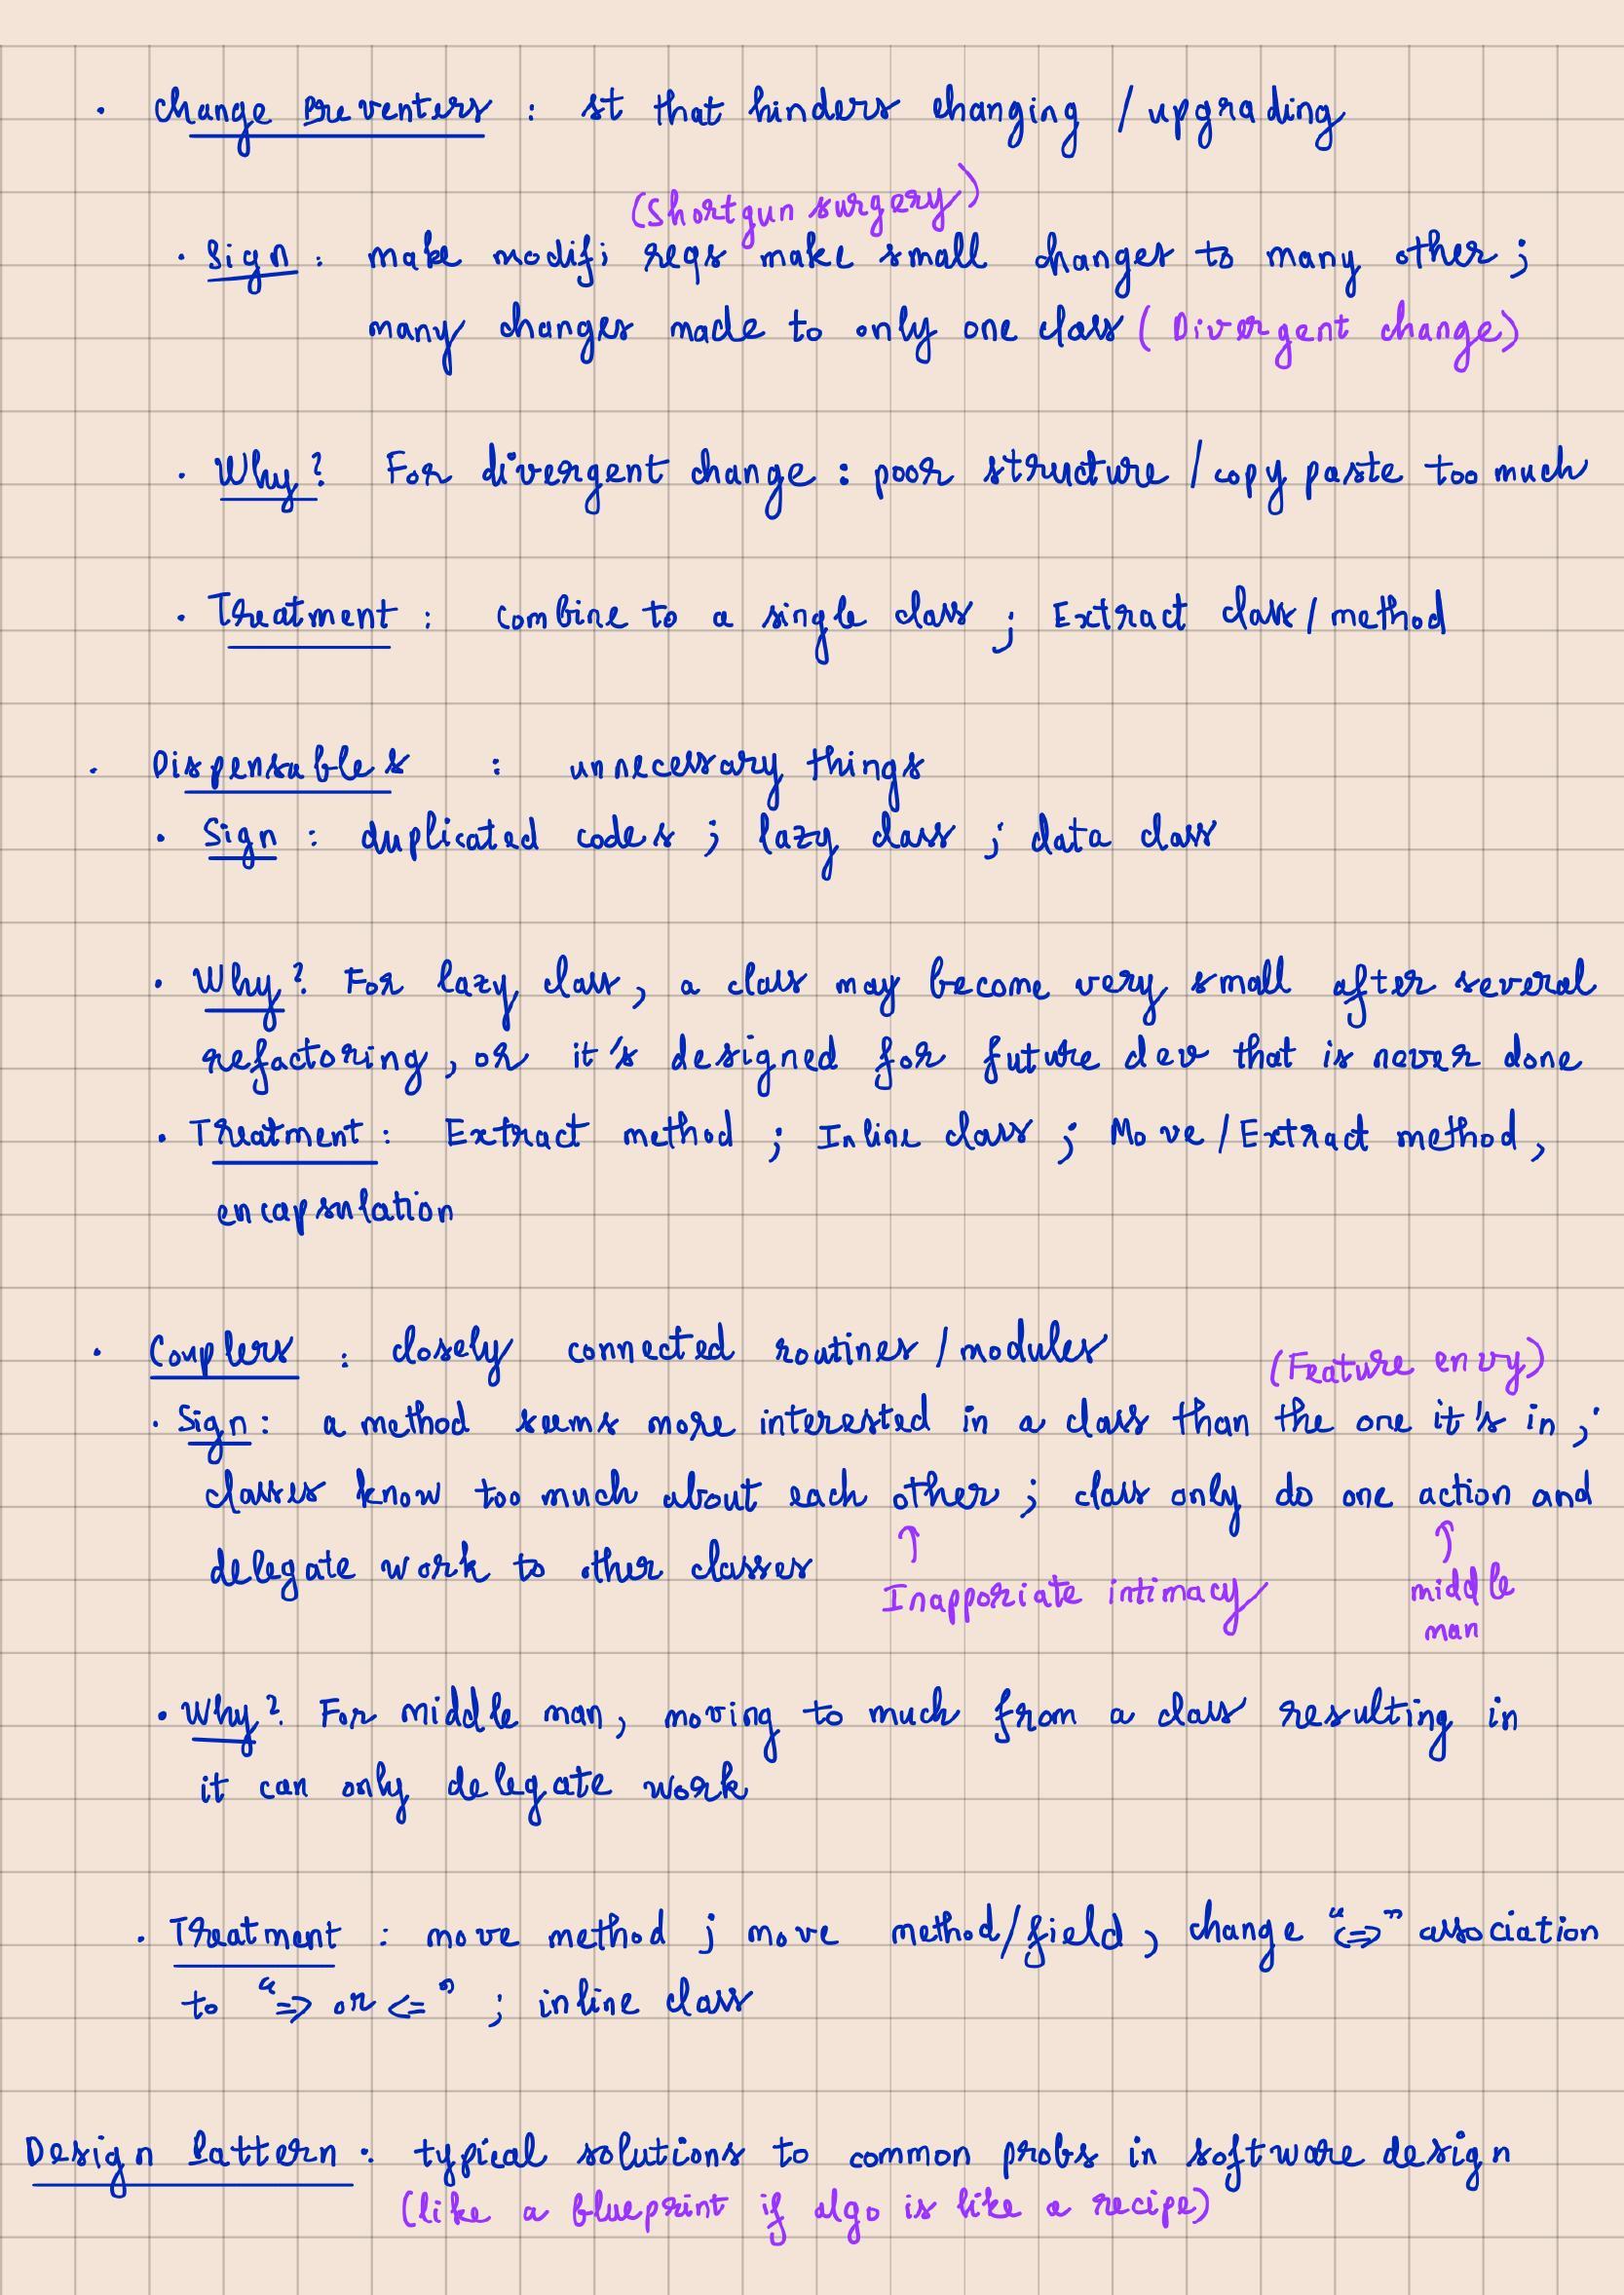 · Change Preventers : st that hinders changing / upgrading
(Shortgun surgery)
· Sign : make modifi reqs make small changes to many other ;
many changes made to only one class ( Divergent change)
· Why? For divergent change : poor structure / copy paste too much
· Treatment : combine to a single class ; Extract class / method
· Dispensables : unnecessary things
· Sign : duplicated codes ; lazy class ; data class
· Why? For lazy class, a class may become very small after several
refactoring, or it's designed for future dev that is never done
· Treatment : Extract method ; Inline class ; Move / Extract method,
encapsulation
· Couplers : closely connected routines / modules
(Feature envy)
· Sign : a method seems more interested in a class than the one it's in ;
classes know too much about each other ; class only do one action and
delegate work to other classes
↑ Inapporiate intimacy ↑ middle
man
· Why? For middle man, moving to much from a class resulting in
it can only delegate work
· Treatment : move method ; move method/field, change "<=>" association
to "=> or <=" ; inline class
Design Pattern : typical solutions to common probs in software design
(like a blueprint if algo is like a recipe)